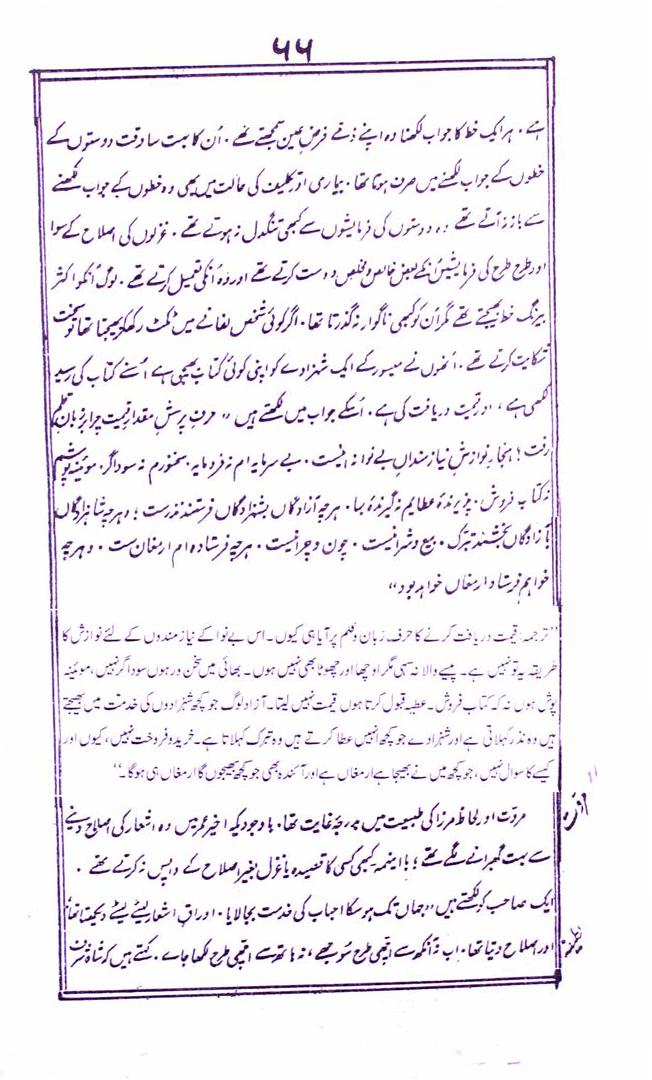 ۶۶
ہے ۔ ہر ایک خط کا جواب لکھنا وہ اپنے ذمّے فرضِ عین سمجھتے تھے ۔ اُن کا بہت سا وقت دوستوں کے
خطوں کے جواب لکھنے میں صرف ہوتا تھا ۔ بیماری اور تکلیف کی حالت میں بھی وہ خطوں کے جواب لکھنے
سے باز نہ آتے تھے وہ دوستوں کی فرمایشوں سے کبھی تنگدل نہ ہوتے تھے ۔ غزلوں کی اصلاح کے سوا
اور طرح طرح کی فرمایشیں اُنکے بعض خالص و مخلص دوست کرتے تھے اور وہ اُنکی تعمیل کرتے تھے ۔ لوگ اُنکو اکثر
بیرنگ خط بھیجتے تھے مگر اُن کو کبھی ناگوار نہ گذرتا تھا ۔ اگر کوئی شخص لفافے میں ٹکٹ رکھکر بھیجتا تھا تو سخت
شکایت کرتے تھے ۔ اُنھوں نے میسور کے ایک شہزادے کو اپنی کوئی کتاب بھیجی ہے اُسنے کتاب کی رسید
لکھی ہے ، اور قیمت دریافت کی ہے ۔ اُسکے جواب میں لکھتے ہیں " حرفِ پرسشِ مقدارِ قیمت چرا بر زبانِ قلم
رفت ؛ ہنجارِ نوازشِ نیازمندانِ بے نوا نہ اینست ۔ بے سرمایہ ام نہ فرومایہ ۔ سخنورم نہ سوداگر ۔ موئینہ پوشم
نہ کتاب فروش ۔ پذیرندۂ عطایم نہ گیرندۂ بہا ۔ ہرچہ آزادگاں بشہزادگاں فرستند نذرست ؛ و ہرچہ شاہزادگاں
بآزادگاں بخشند تبرک ۔ بیع و شرا نیست ۔ چون و چرا نیست ۔ ہرچہ فرستادہ ام ارمغان ست ۔ و ہرچہ
خواہم فرستاد ارمغاں خواہد بود "
"ترجمہ: قیمت دریافت کرنے کا حرف زبان و قلم پر آیا ہی کیوں۔ اس بے نوا کے نیاز مندوں کے لئے نوازش کا
طریقہ یہ تو نہیں ہے۔ پیسے والا نہ سہی مگر اوچھا اور چھوٹا بھی نہیں ہوں۔ بھائی میں سخن ور ہوں سوداگر نہیں، موئینہ
پوش ہوں نہ کہ کتاب فروش۔ عطیہ قبول کرتا ہوں قیمت نہیں لیتا۔ آزاد لوگ جو کچھ شہزادوں کی خدمت میں بھیجتے
ہیں وہ نذر کہلاتی ہے اور شہزادے جو کچھ انہیں عطا کرتے ہیں وہ تبرک کہلاتا ہے۔ خرید و فروخت نہیں، کیوں اور
کیسے کا سوال نہیں، جو کچھ میں نے بھیجا ہے ارمغاں ہے اور آئندہ بھی جو کچھ بھیجوں گا ارمغاں ہی ہوگا۔"
مروّت اور لحاظ مرزا کی طبیعت میں بدرجۂ غایت تھا ۔ باوجودیکہ اخیر عمر میں وہ اشعار کی اصلاح دینے
سے بہت گھبرانے لگے تھے ؛ بااینہمہ کبھی کسی کا قصیدہ یا غزل بغیر اصلاح کے واپس نہ کرتے تھے ۔
ایک صاحب کو لکھتے ہیں "جہاں تک ہو سکا احباب کی خدمت بجا لایا ۔ اوراقِ اشعار لیٹے لیٹے دیکھتا تھا
اور اصلاح دیتا تھا ۔ اب نہ آنکھ سے اچھی طرح سوجھے ، نہ ہاتھ سے اچھی طرح لکھا جاے ۔ کہتے ہیں کہ شاہ شرف